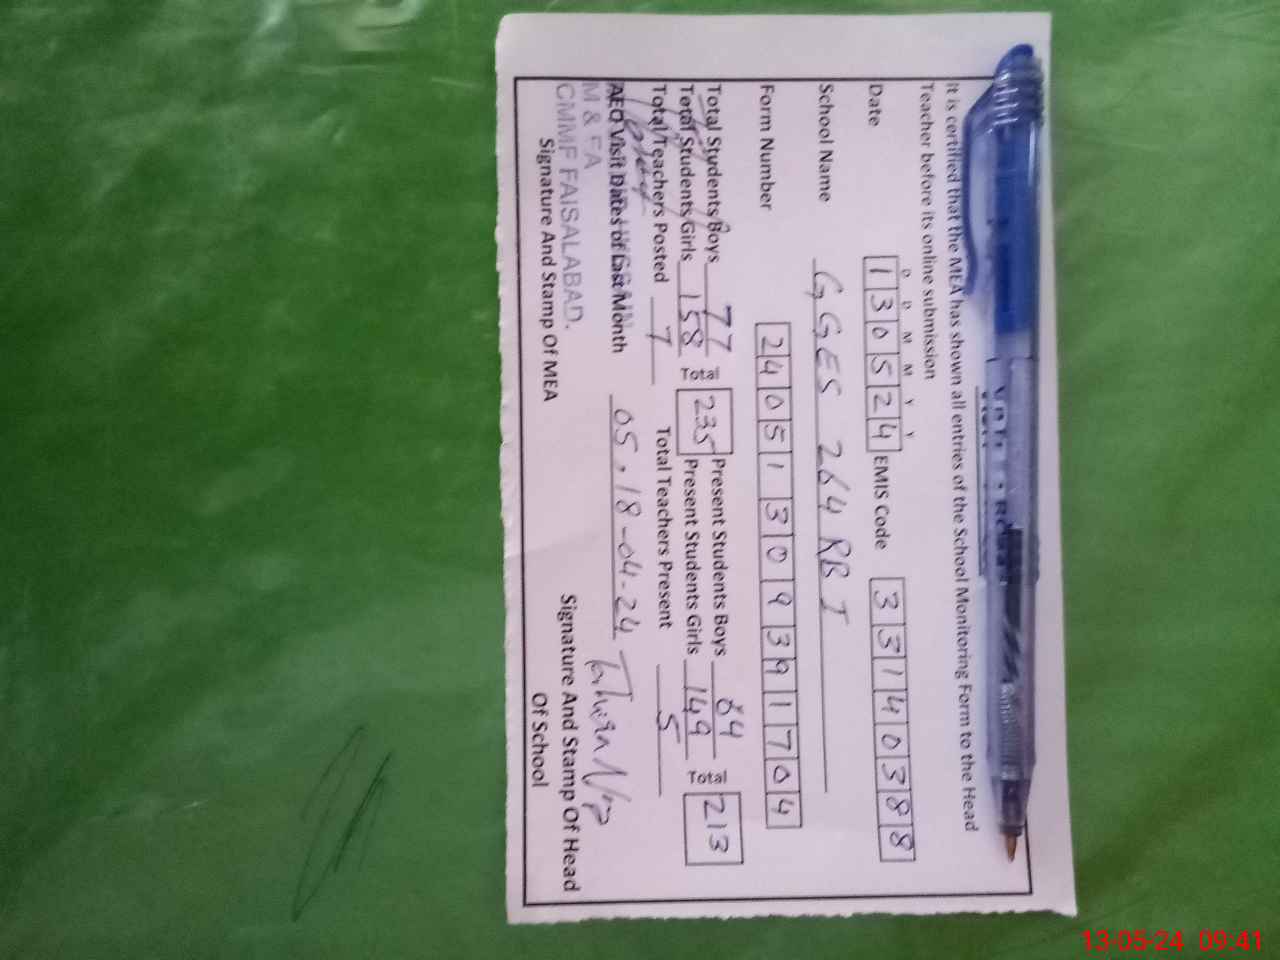 It is certified that the MEA has shown all entries of the School Monitoring Form to the Head
Teacher before its online submission
D D M M Y Y
Date 130524 EMIS Code 33140388
School Name GGES 264 RB I
Form Number 24051309391704
Total Students Boys 77 Present Students Boys 64
Total Students Girls 158 Total 235 Present Students Girls 149 Total 213
Total Teachers Posted 7 Total Teachers Present 5
AEO Visit Dates of Last Month 05,18-04-24
M & EA
CMMF FAISALABAD.
Signature And Stamp Of MEA
Signature And Stamp Of Head
Of School
13-05-24 09:41